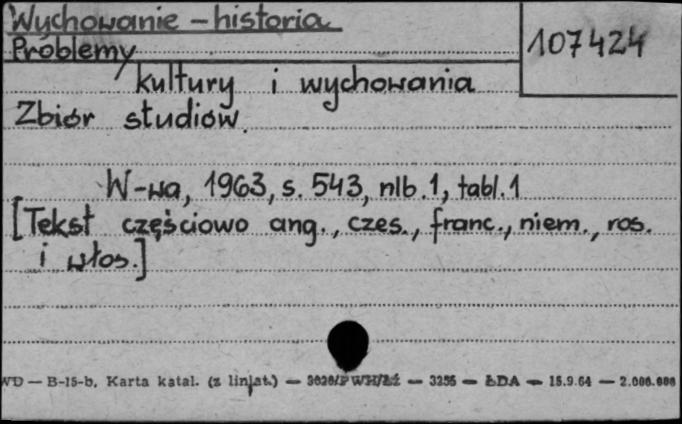 Wychowanie – historia
107424
Problemy
kultury i wychowania
Zbiór studiów.
W-wa, 1963, s. 543, nlb. 1, tabl. 1
[Tekst częściowo ang., czes., franc., niem., ros.
i włos.]
WD — B-15-b, Karta katal. (z liniat.) — 3020/PWH/Łź — 3255 — ŁDA — 15.9.64 — 2.000.000